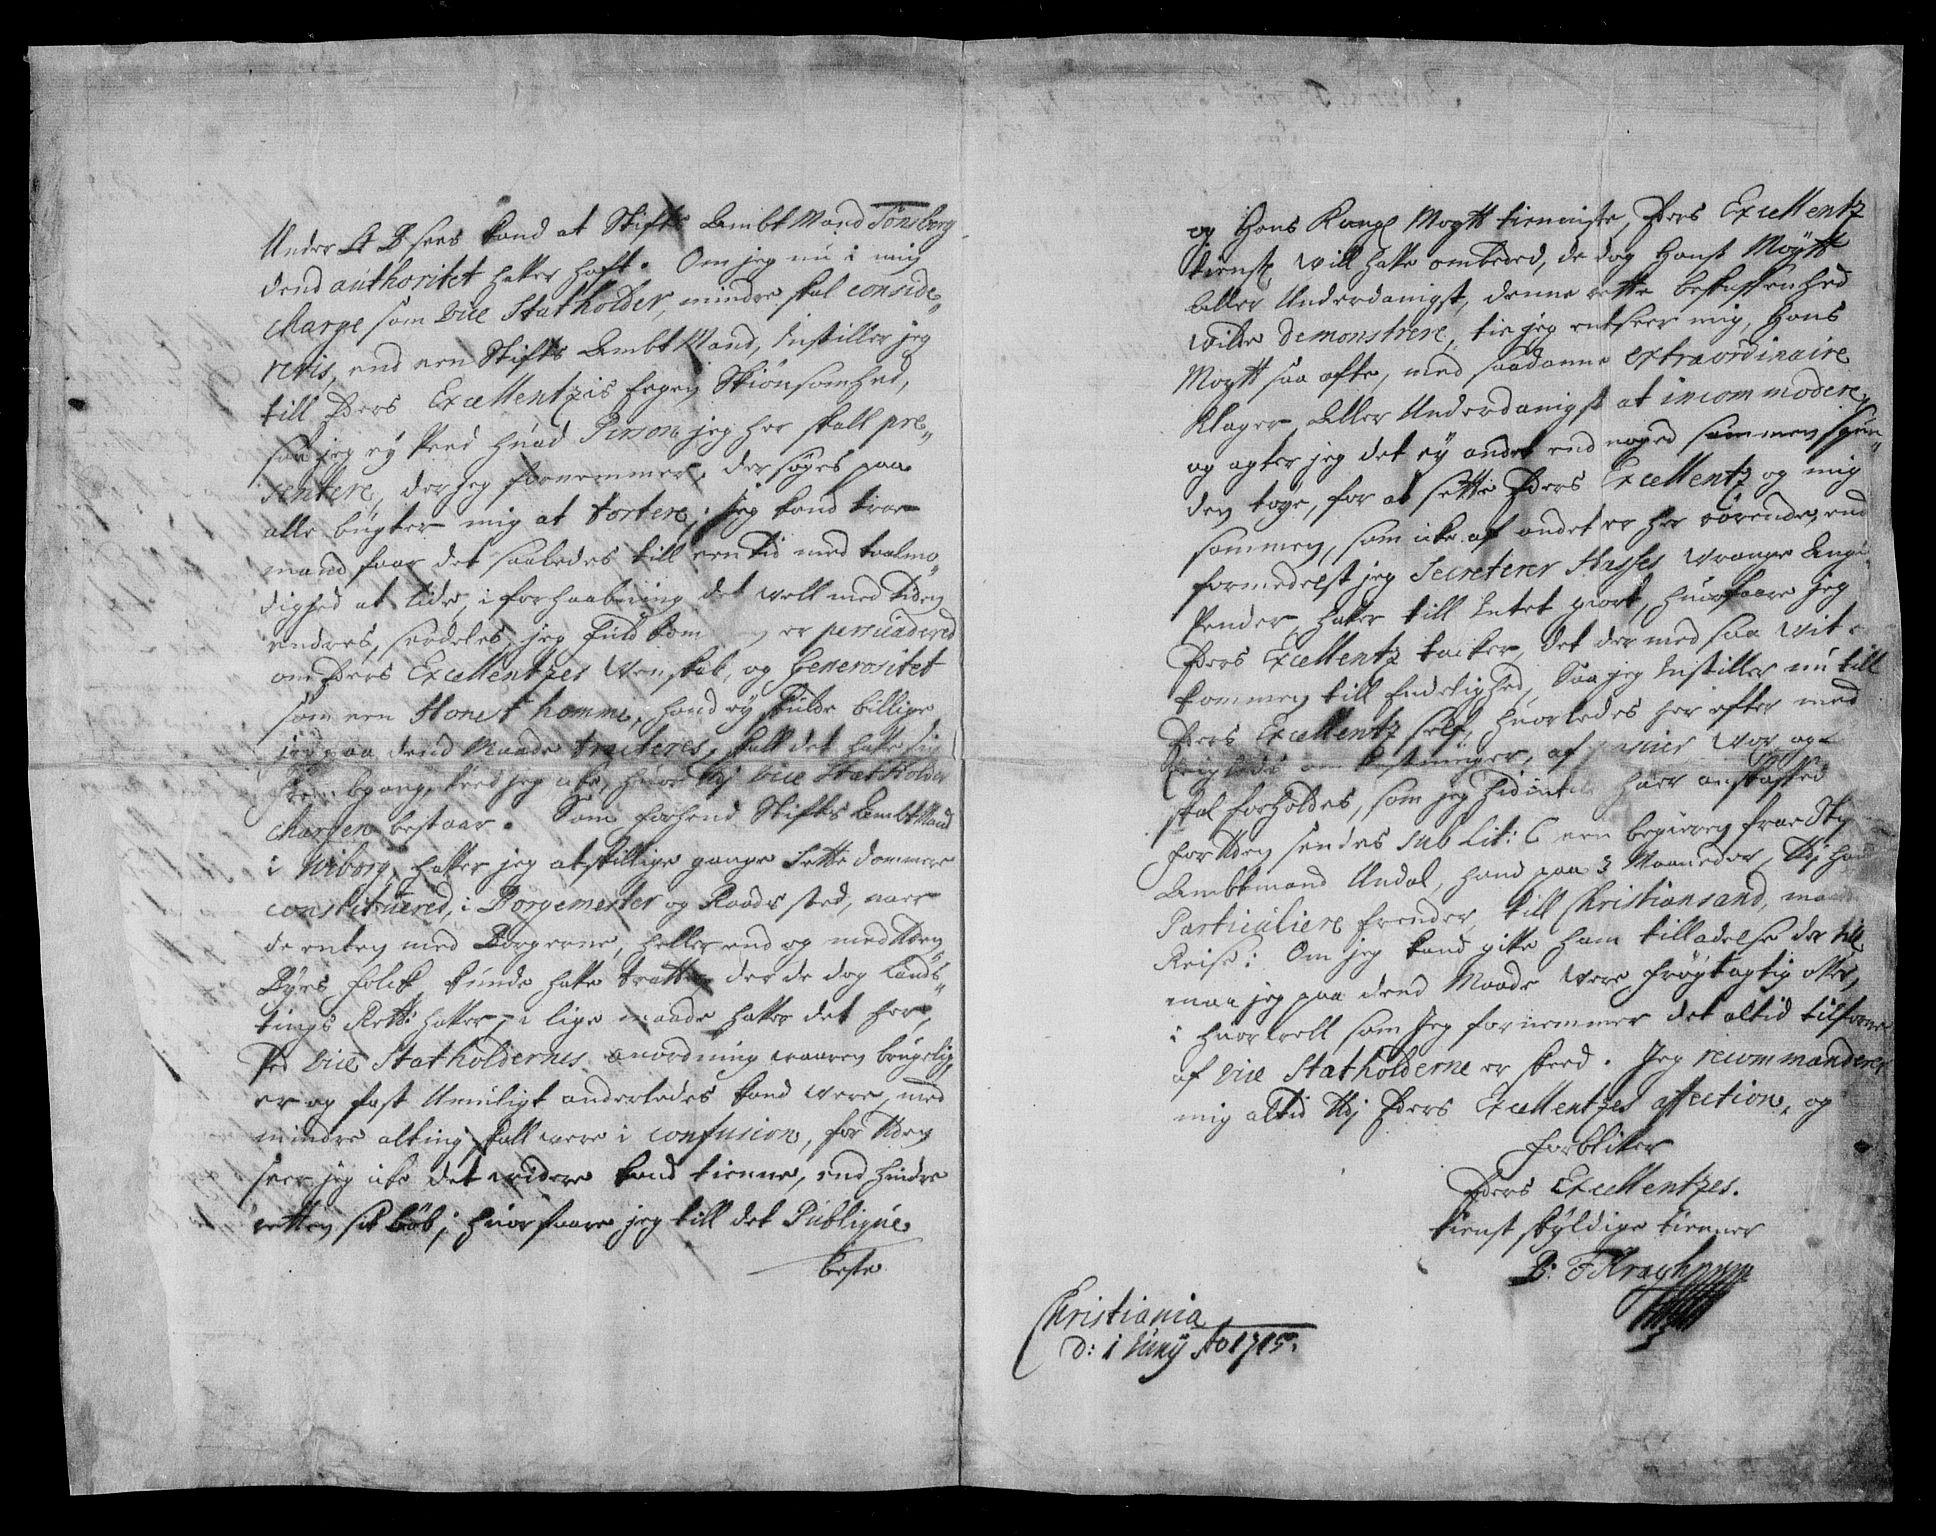 Under Lt B sees kand at Stifts Ambt Mand Tønsberg
dend authoritet hafver haft. Om jeg nu i min
charge som Vice Statholder, mindre skal conside-
reris, end een Stifts Ambt Mand, Instiller jeg
till Eders Excellentzis Eegen Skiønsomhed,
saa jeg ey veed huad Person jeg her skall pre-
sentere, der jeg fornemmer, der søges paa
alle kugter mig at tortere; jeg kand troe
mand faar det saaledes till een tid med taalmo-
dighed at lide, i forhaabning det vell med tiden
endres, serdeles jeg fuldkom er persuadered
om Eders Excellentzes Venskab, og Generositet
som een Honet homme, hand ey skulde billige
jeg paa dend Maade tracteres, skall det hafve sin
frembgang, veed jeg icke, huor udj Vice Statholder
chargen bestaar. Som forhend Stifts Ambt Mand
i Wiborg, hafver jeg atskillige gange Sette dommere
constituered, i Borgemester og Raads sted, naar
de enten med Borgerne, heller end og med uden
Byes folck, kunde hafve trætte, der de dog Lands-
tings Rette hafver, i lige maade hafver det her,
ved Vice Statholdernes anordning vaaren brugelig,
er og fast Umuligt anderledes kand vere, med
mindre alting skall vere i confusion, for uden
seer jeg icke det videre kand tienne, end hindre
retten sit løb; huorfaare jeg till det Publique
beste
og Hans Kongl Maytt tienniste, Eders Excellentz
tienstl vill hafve ombeded, de dog Hans Maytt
aller Underdanigst, denne rette beskaffenhed
vilde demonstrere, tie jeg entseer mig, Hans
Maytt saa ofte, med saadanne extraordinaire
Klager, Aller Underdanigst at incommodere,
og agter jeg det ey andet end noged sammen spun-
den tøye, for at sette Eders Excellentz og mig
sammen, som icke af andet er her rørende, end
formedelst jeg Secreterer Husses Vrange
hafver till Intet giort, huorfaare jeg
Eders Excellentz tacker, det der med saa vit er
kommen till Endelighed, Saa jeg Instiller nu till
Eders Excellentz self, huorledes her efter med
af Vor og
skal forholdes, som jeg hidintil haer anskaffed
for uden sendes sub Lit: C een begiering fra Stg
Ambtmand Undal, hand paa 3 Maaneder, udj hans
Particuliere Erender, till Christiansand, maatte
Reise; Om jeg kand gifve ham tilladelse der till,
maa jeg paa dend Maade vere frøgtagtig ofver,
i huorvell som jeg fornemmer det altid tilforne
af Vice Statholderne er skeed. Jeg recommanderer
mig altid udj Eders Excellentzes affection, og
forblifver
Eders Excellentzes.
tienst skyldige tienner
B: F Kragh
Christiania
D: 1 Juny Ao 1715.